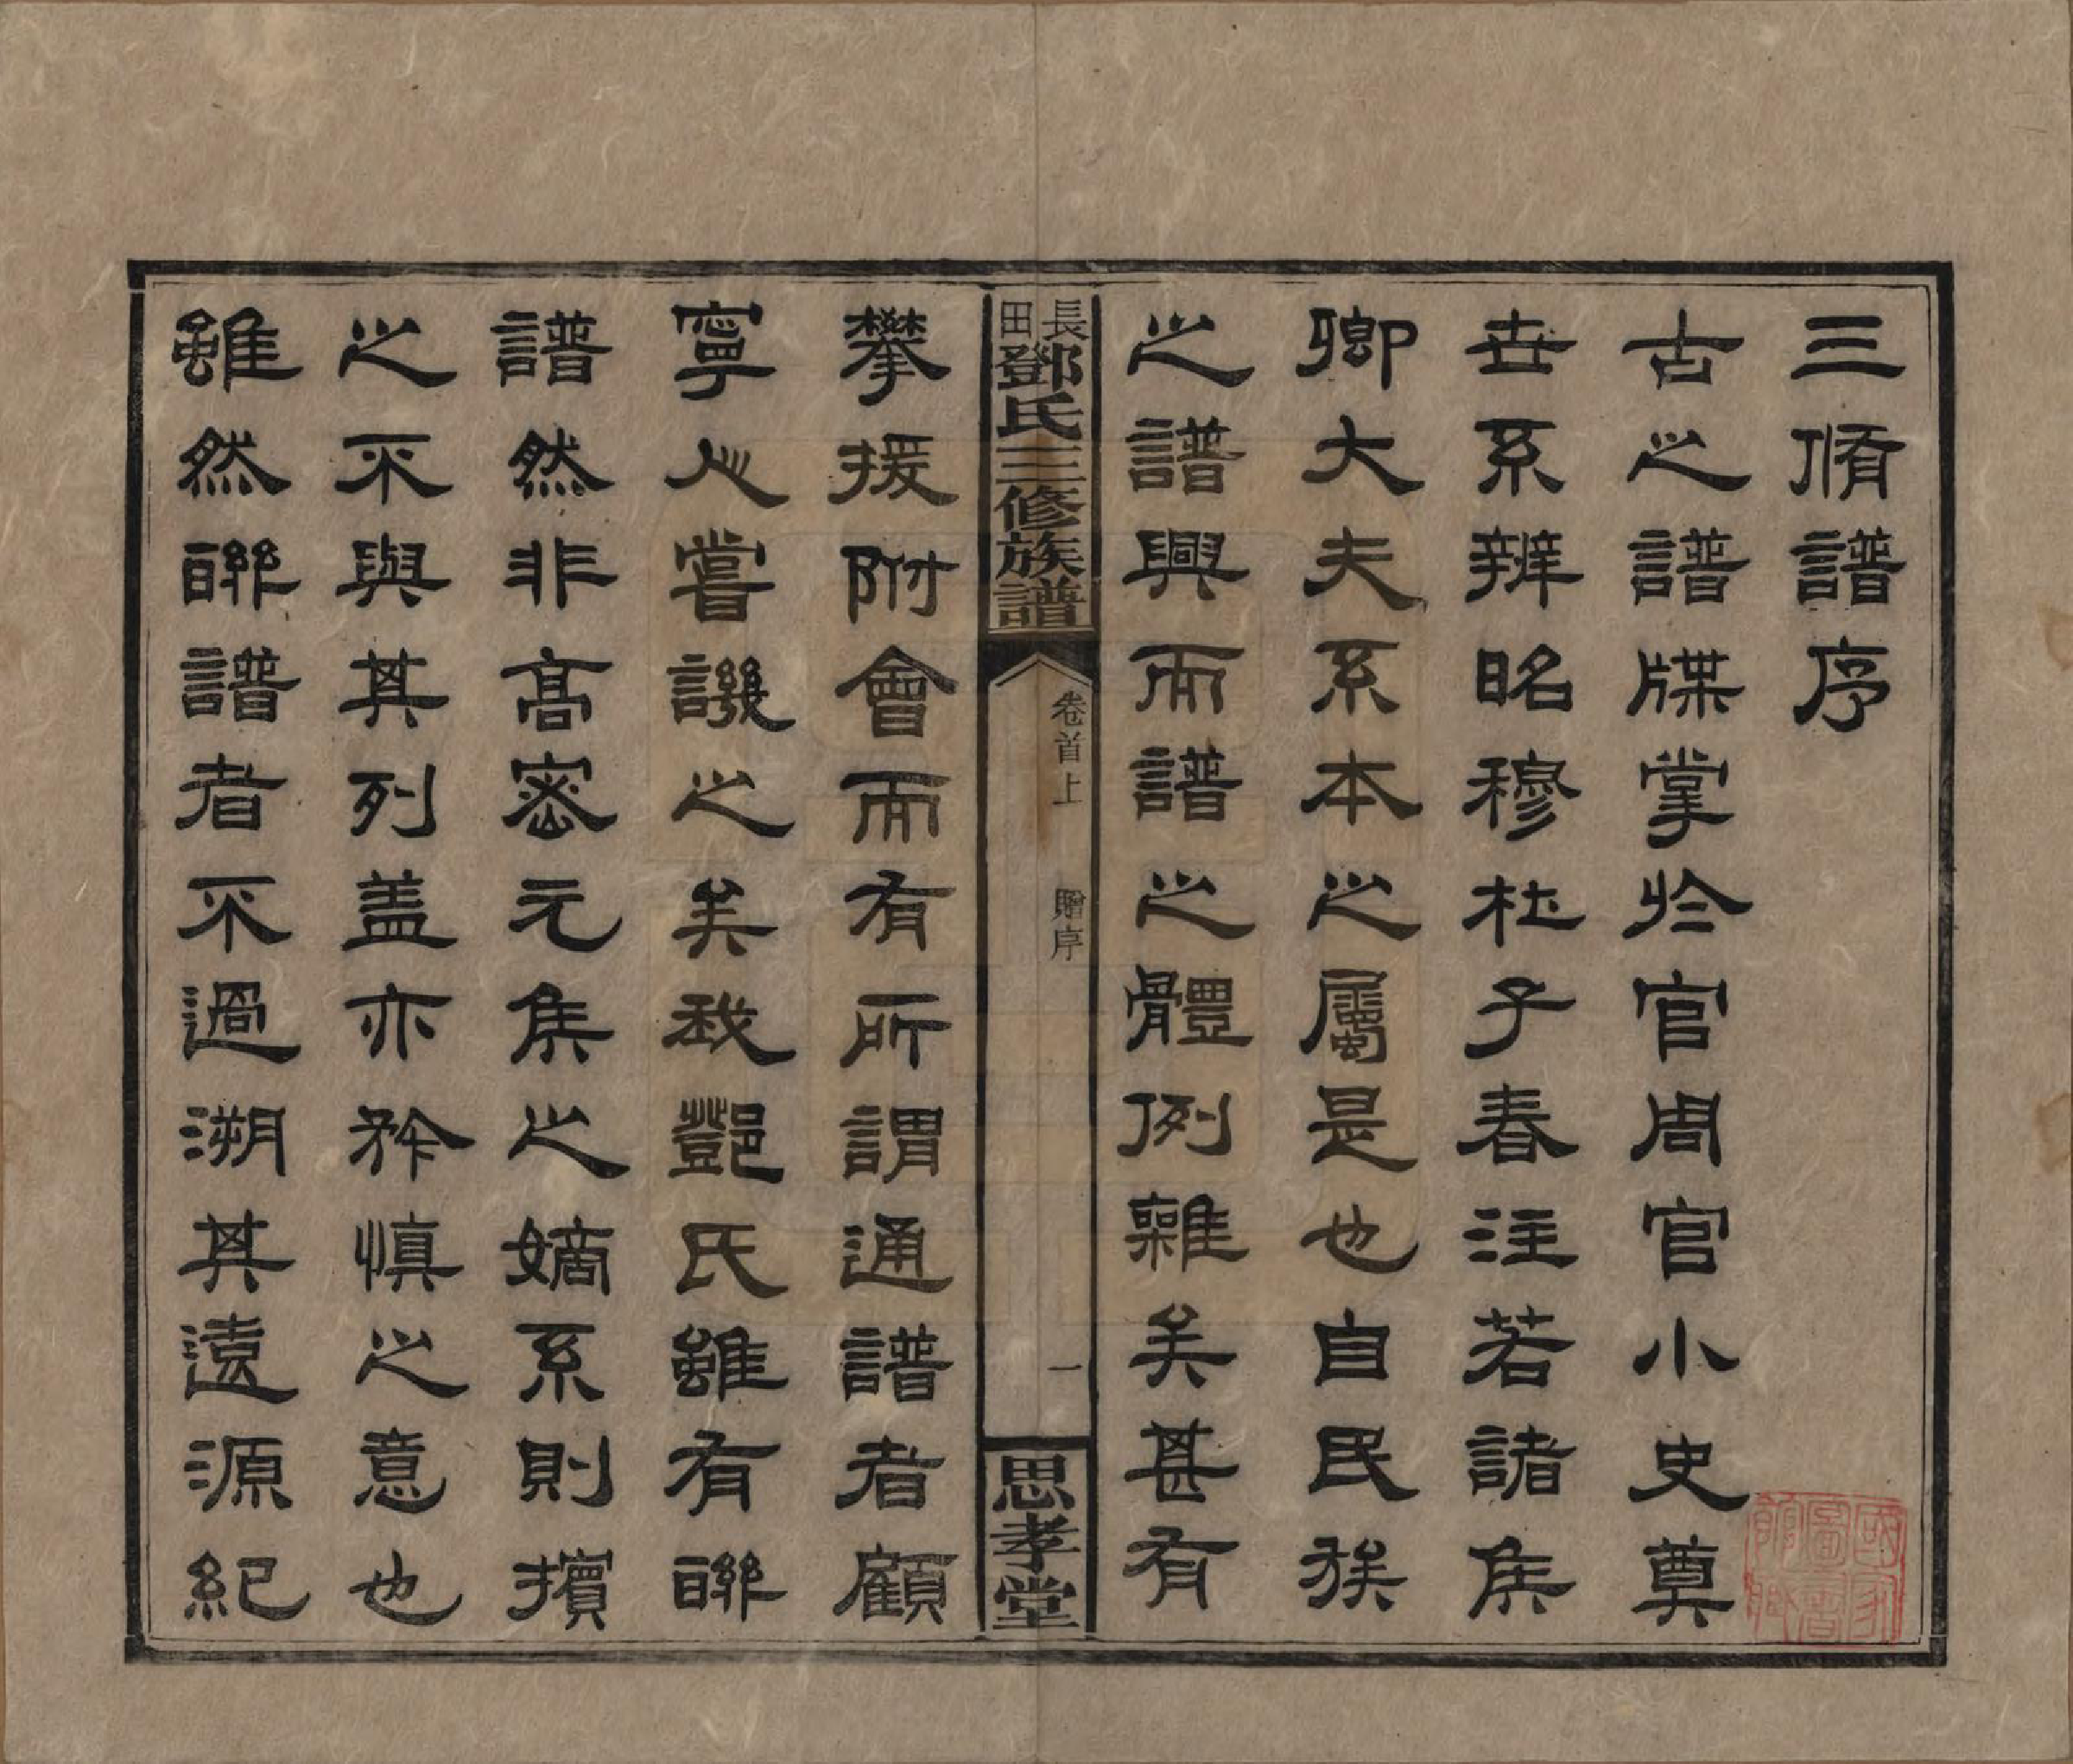 三脩譜序
古之譜牒掌於官周官小史奠
世系辨昭穆杜子春注若諸侯
卿大夫系本之屬是也自民族
之譜興而譜之體例雜矣甚有
長田鄧氏三修族譜
卷首上 贈序
一
思孝堂
攀援附會而有所謂通譜者顧
寧人嘗譏之矣我鄧氏雖有聯
譜然非高密元侯之嫡系則擯
之不與其列蓋亦矜慎之意也
雖然聯譜者不過溯其遠源紀
國家圖書館藏